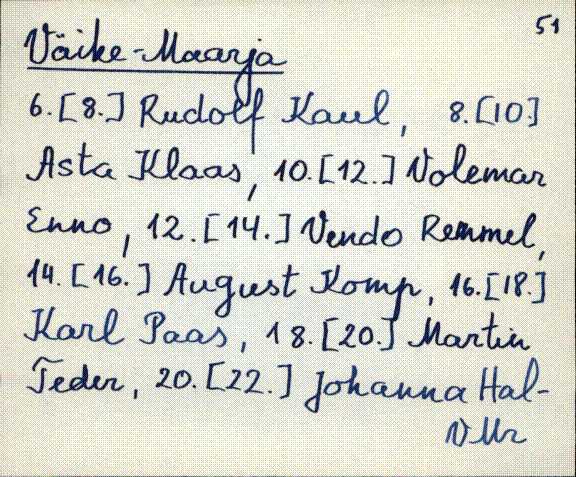 51
Väike-Maarja
6.[8.] Rudolf Kaul, 8.[10]
Asta Klaas, 10.[12.] Volemar
Enno, 12.[14.] Vendo Remmel,
14.[16.] August Komp, 16.[18.]
Karl Paas, 18.[20.] Martin
Teder, 20.[22.] Johanna Hal-